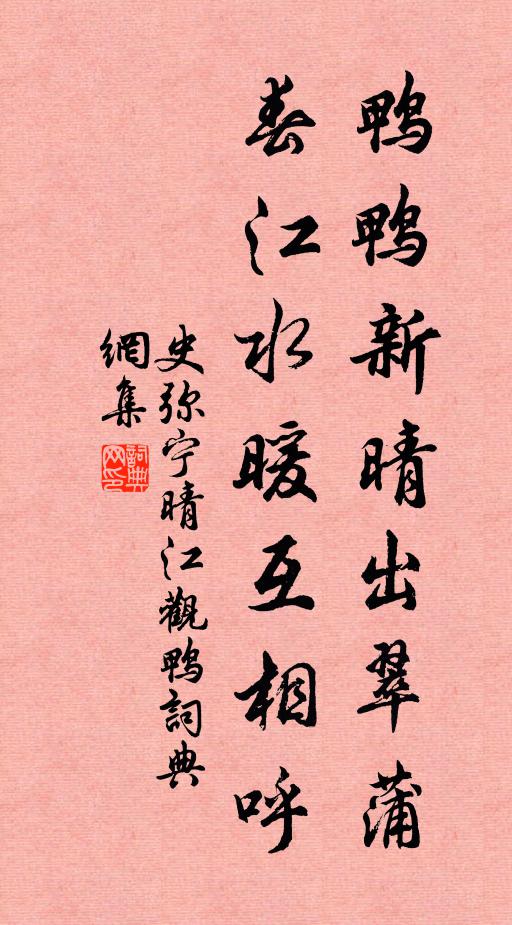 鸭鸭新晴出翠蒲
春江水暖互相呼
史弥宁晴江觀鸭詞典
網集
詞典
网印